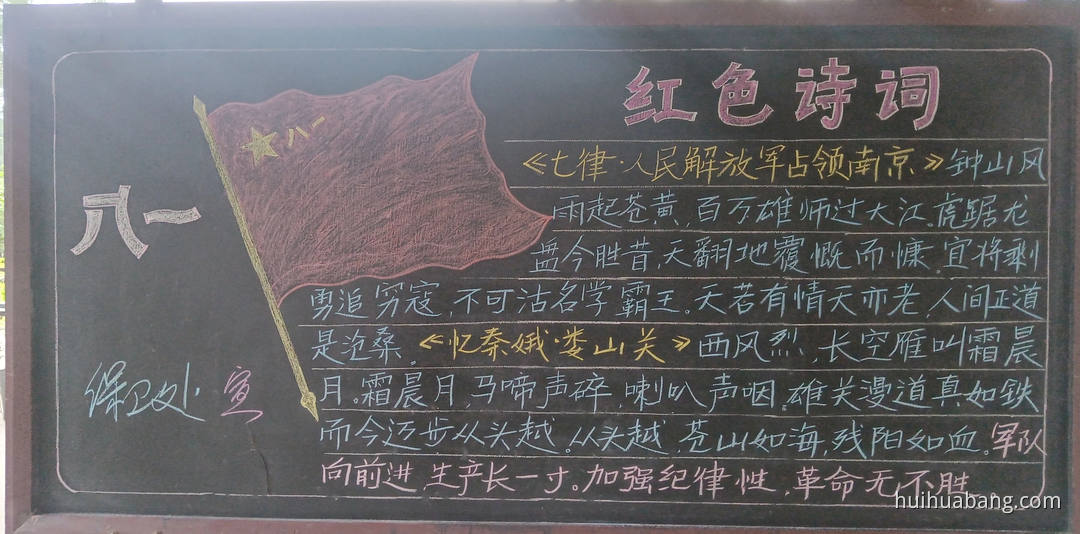 红色诗词
八一
八一
《七律·人民解放军占领南京》钟山风
雨起苍黄,百万雄师过大江。虎踞龙
盘今胜昔,天翻地覆慨而慷。宜将剩
勇追穷寇,不可沽名学霸王。天若有情天亦老,人间正道
是沧桑。《忆秦娥·娄山关》西风烈,长空雁叫霜晨
月。霜晨月,马啼声碎,喇叭声咽。雄关漫道真如铁
而今迈步从头越。从头越,苍山如海,残阳如血。军队
向前进 生产长一寸。加强纪律性,革命无不胜
保卫处 宣
huihuabang.com